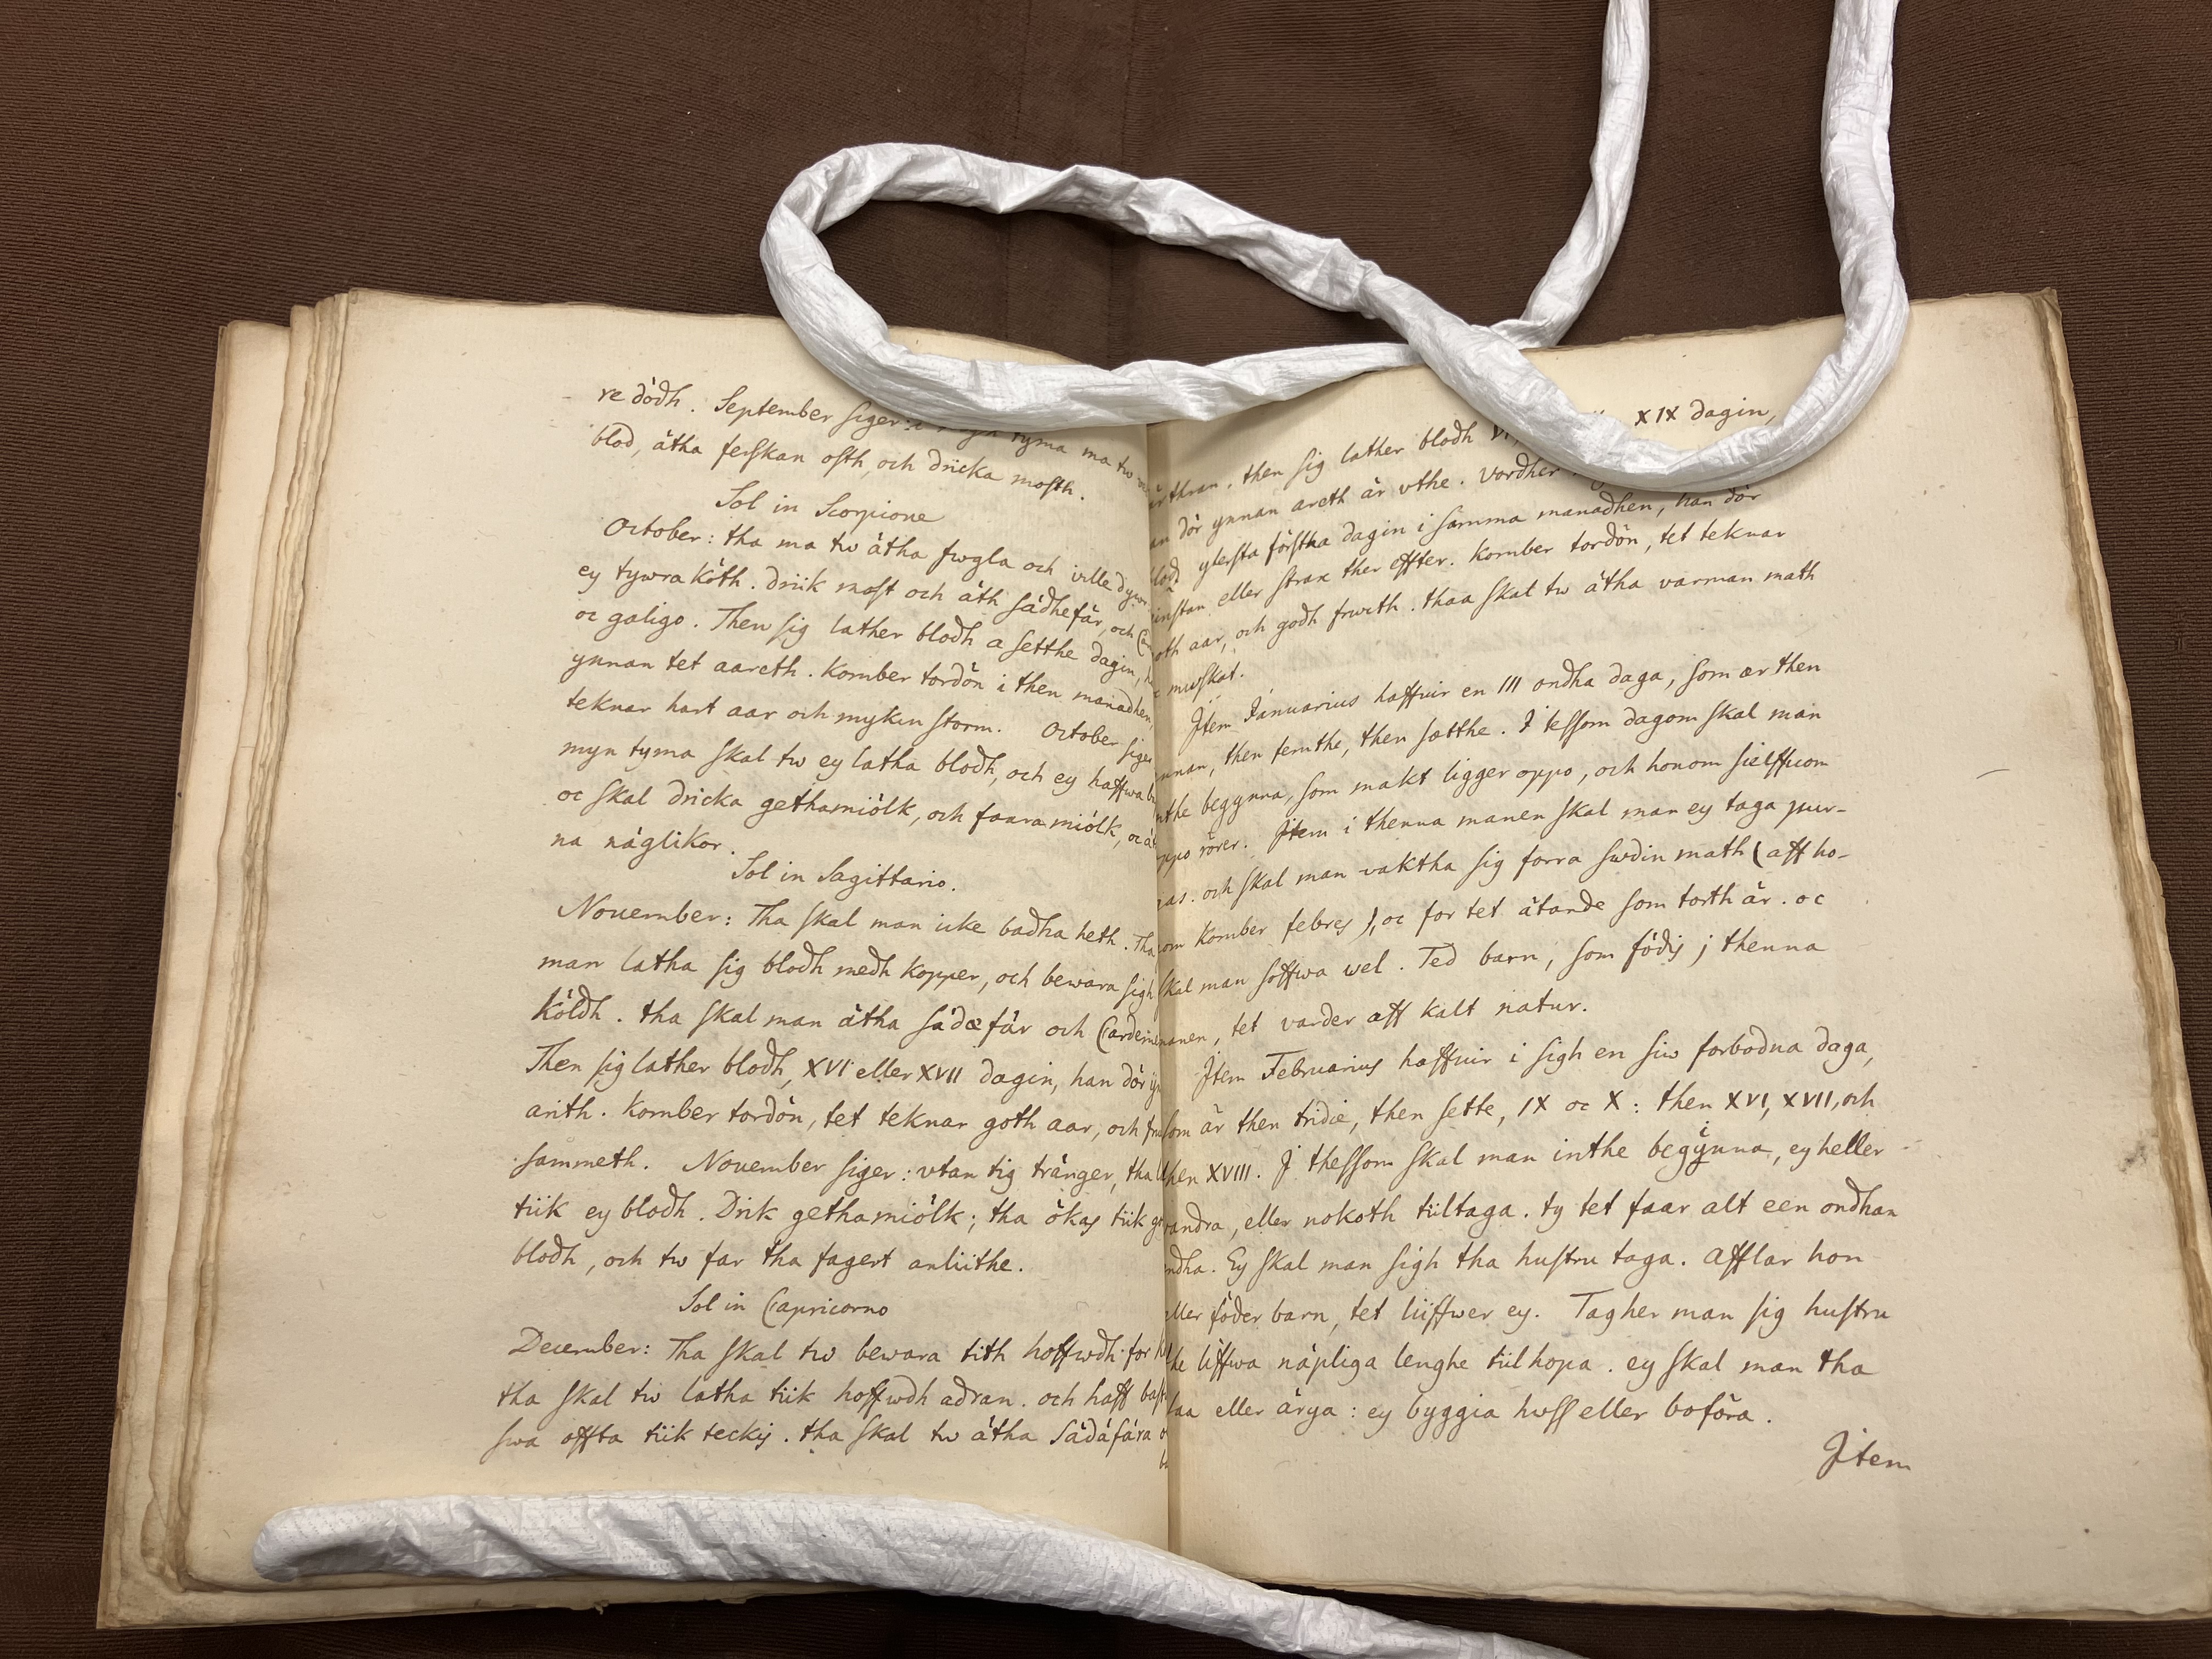 re dödh. September siger: tyma ma tw
blod, ätha ferskan osth, och dricka mosth.
Sol in Scorpione
October: tha ma tw ätha fwgla och ville dywr
ey tywra köth. driik most och äth sädhefär, och
oc galigo. Then sig lather blodh a setthe dagin,
ynnan tet aareth. Komber tordön i then manadhen,
teknar hart aar och mykin storm. October siger
myn tyma skal tw ey latha blodh, och ey haffwa
oc skal dricka gethamiölk, och faara miölk, oc
na näglikor.
Sol in Sagittario.
November: Tha skal man icke badha heth. Tha
man latha sig blodh medh kopper, och bewara sigh
köldh. tha skal man ätha sädæfär och
Then sig lather blodh, XVI eller XVII dagin, han dör
arith. Komber tordön, tet teknar goth aar, och
sammeth. November siger: vtan tig tränger, tha
tiik ey blodh. Drik gethamiölk; tha ökas tiik
blodh, och tw far tha fagert anliithe.
Sol in Capricorno
December: Tha skal tw bewara tith hoffwdh for
tha skal tw latha tiik hoffwdh adran. och haff
swa offta tiik teckis. tha skal tw ätha Sädäfära
XIX dagin,
thran. then sig lather blodh
dör ynnan areth är vthe. Vordher
blod ytersta förstha dagin i samma manadhen, han dör
eller strax ther effter. Komber tordön, tet teknar
oth aar, och godh frwcth. thaa skal tw ätha varman math
muskat.
Jtem Januarius haffuir en III ondha daga, som ær then
nnan, then femthe, then sætthe. I tessom dagom skal man
nthe begynna, som makt ligger oppo, och honom sielffuom
oppo rörer. Jtem i thenna manen skal man ey taga pur-
as. och skal man vaktha sig forra swdin math (aff ho-
om komber febres), oc for tet ätande som torth är. oc
skal man soffwa wel. Ted barn, som födis j thenna
manen, tet varder aff kalt natur.
Jtem Februarius haffuir i sigh en siw forbodna daga,
som är then tridie, then sette, IX oc X: then XVI, XVII, och
then XVIII. J thessom skal man inthe begynna, ey heller
andra, eller nokoth tiiltaga. ty tet faar alt een ondhan
ndha. Ey skal man sigh tha hustru taga. afflar hon
eller föder barn, tet liiffwer ey. Tagher man sig hustru
the liffwa näpliga lenghe tiilhopa. ey skal man tha
saa eller ärya: ey byggia hwss eller boföra.
Jtem